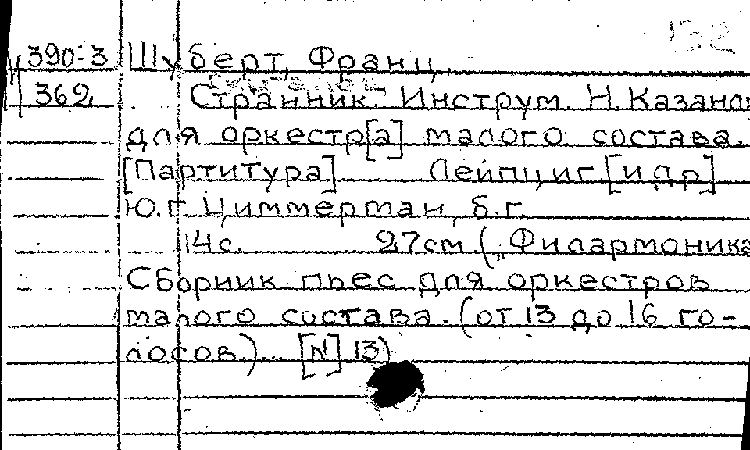 132
390-3 Шуберт, Франц.
362 Странник. Инструм. Н. Казан
для оркестр[а] малого состава.
[Партитура] Лейпциг [и др]
Ю.Г. Циммерман, б.г.
14с. 27см („Филармоника
Сборник пьес для оркестров
малого состава. (от 13 до 16 го-
лосов) [N] 13)